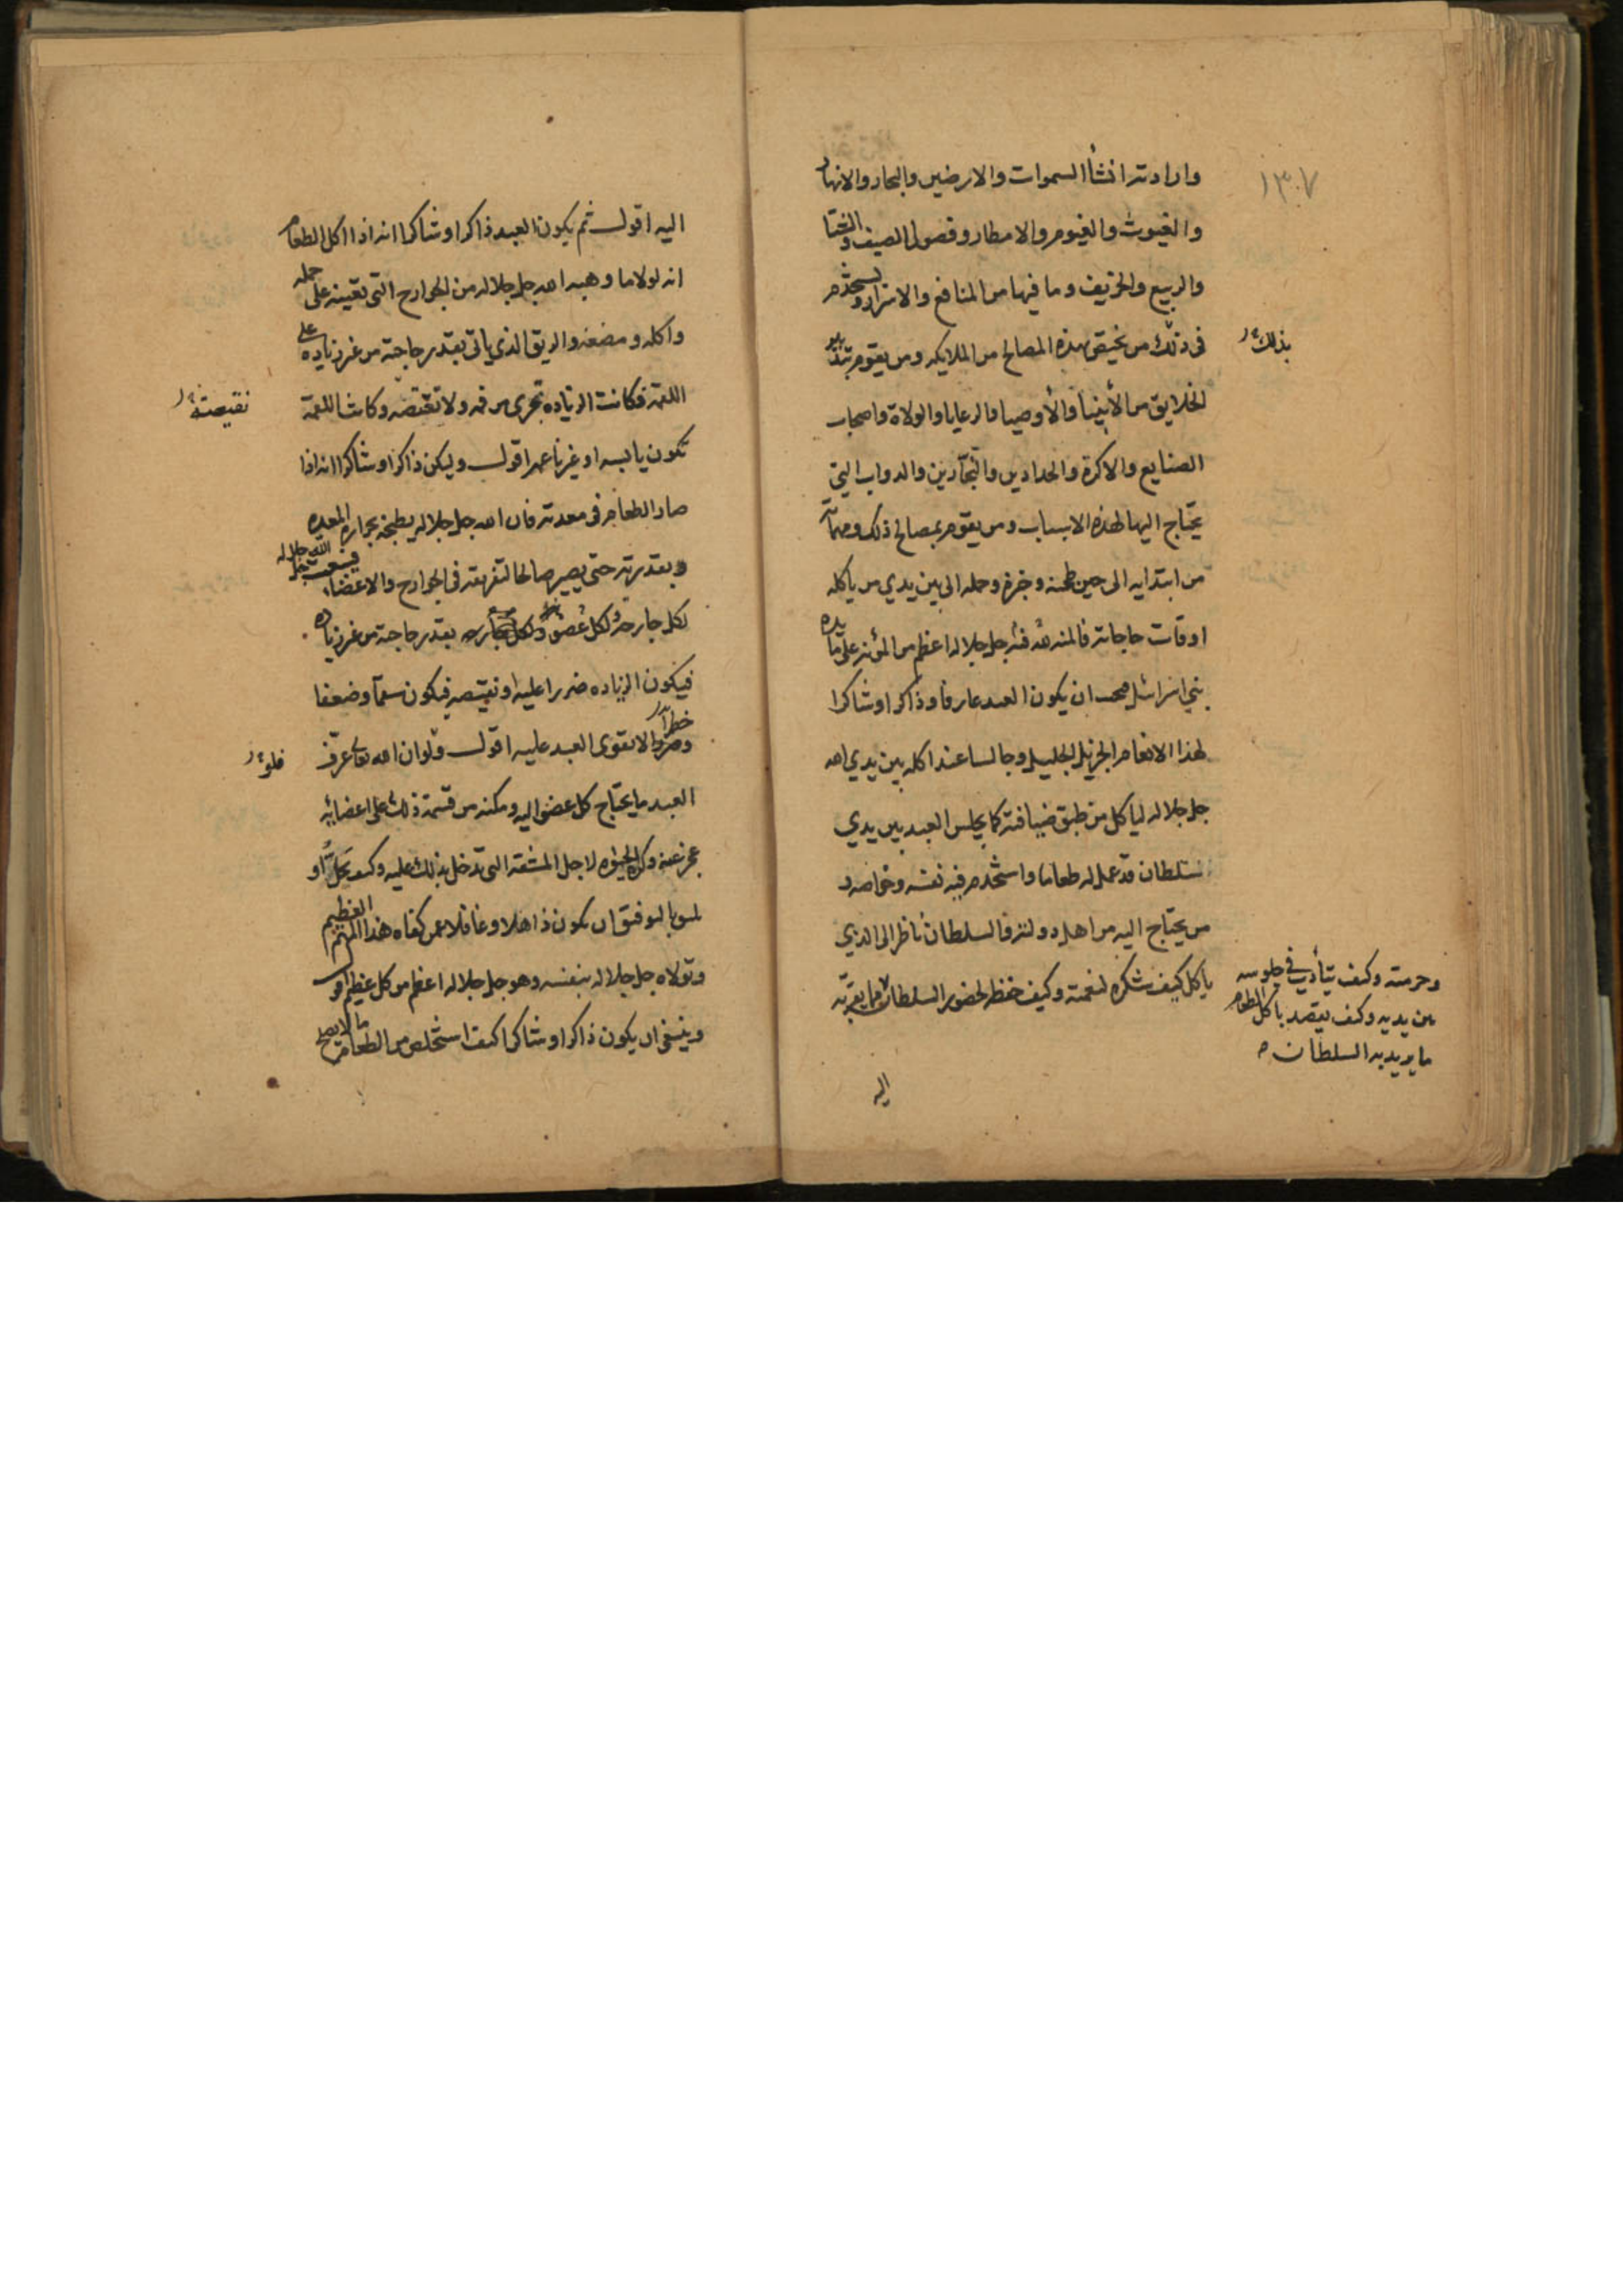 ١٣٠٧
وارادته انشأ السموات والارضين والبحار والانهار
والغيوث والغيوم والامطار وفصول الصيف والشتا
والربيع والخريف وما فيها من المنافع والاسرار ويستخدم
فى ذلك من يختص بهذه المصالح من الملايكه ومن يقوم بتدبير
بذلك
الخلايق من الأنبيأ والأوصيا والرعايا والولاة واصحاب
الصنايع والاكرة والحدادين والنجّارين والدواب التي
يحتاج اليها لهذه الاسباب ومن يقوم بمصالح ذلك ومهمآ
من ابتدايه الى حين طحنه وخبزه وحمله الى بين يدي من ياكله
اوقات حاجاته فالمنه لله فيه جل جلاله اعظم من المؤنه على مايده
بني اسرائيل ان يكون العبد عارفا وذاكرا وشاكرا
لهذا الانعام الجزيل الجليل وجالسا عند اكله بين يدي الله
جل جلاله لياكل من طبق ضيافته كما يجلس العبد بين يدي
سلطان قد عمل له طعاما واستخدم فيه نفسه وخواصه و
من يحتاج اليه من اهل دولته فالسلطان ناظر الى الذي
ياكل كيف شكره لنعمته وكيف حفظه لحضور السلطان
وحرمته وكيف يتأدب في جلوسه
بين يديه وكيف يقصد باكل الطعام
ما يريد به السلطان
اليه
اليه اقول ثم يكون العبد ذاكرا وشاكرا انه اذا اكل الطعام
انه لولا ما وهبه الله جل جلاله من الجوارح التى تعينه على حمله
واكله ومضغه والريق الذي ياتى بقدر حاجته من غير زياده على
اللقمه فكانت الزياده تجرى من فمه ولا تنقصه وكانت اللقمة
نقيصته
تكون يابسه او غير ناعمه اقول وليكن ذاكرا وشاكرا انه اذا
صار الطعام فى معدته فان الله جل جلاله يطبخه بحرارة المعده
وبقدرته حتى يصير صالحا لتفرقته فى الجوارح والاعضاء
فيبعث الله جل جلاله
لكل جارحه ولكل عضو بقدر حاجته من غير زياده
فيكون الزياده ضررا عليه او نقيصه فيكون سقمآ وضعفا
وخطرآ لا يقوى العبد عليه اقول ولو ان الله تعالى عرّف
فلو
العبد ما يحتاج كل عضو اليه ومكنه من قسمة ذلك على اعضائه
عجز عنه وكره الحيوه لاجل المشقه التى تدخل بذلك عليه وكيف يحل او
يليق بالتوفيق ان يكون ذاهلا وغافلا عمن كفاه هذا المهم العظيم
وتولاه جل جلاله بنفسه وهو جل جلاله اعظم من كل عظيم اقول
وينبغى ان يكون ذاكرا وشاكرا كيف استخلص من الطعام ما لا يصلح